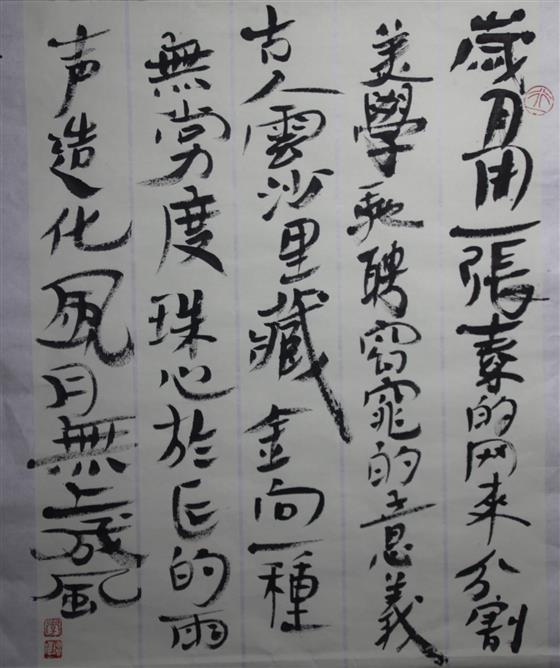 歲月用一張素的网来分割
美學馳聘窈窕的意義
古人雲沙里藏金向一種
無常度珠心於巨的雨
声造化風月無上成風